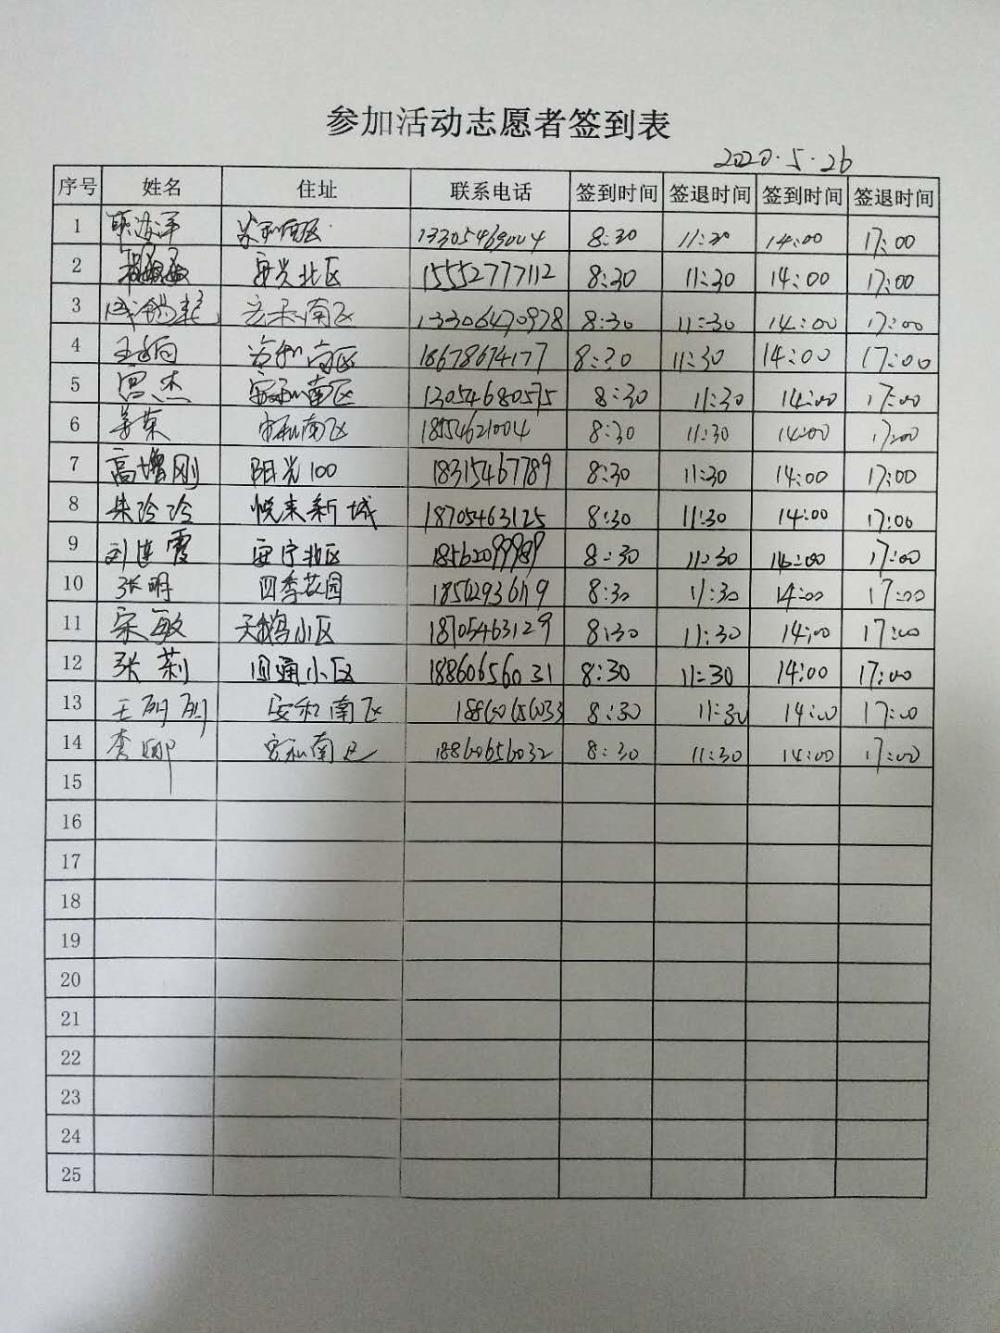 参加活动志愿者签到表
2020.5.26
序号 姓名 住址 联系电话 签到时间 签退时间 签到时间 签退时间
1 安和南区 13305469004 8:30 11:30 14:00 17:00
2 安兴北区 15552777112 8:30 11:30 14:00 17:00
3 安和南区 13306470978 8:30 11:30 14:00 17:00
4 安和南区 18678674177 8:30 11:30 14:00 17:00
5 杰 安和南区 13054680575 8:30 11:30 14:00 17:00
6 安和南区 8:30 11:30 14:00 17:00
7 高增刚 阳光100 18315467789 8:30 11:30 14:00 17:00
8 朱玲玲 悦来新城 18705463125 8:30 11:30 14:00 17:00
9 刘连霞 安宁北区 8:30 11:30 14:00 17:00
10 张明 四季花园 8:30 11:30 14:00 17:00
11 宋敏 天鹅小区 18705463129 8:30 11:30 14:00 17:00
12 张莉 小区 18860656031 8:30 11:30 14:00 17:00
13 安和南区 18860656033 8:30 11:30 14:00 17:00
14 李娜 安和南区 18860656032 8:30 11:30 14:00 17:00
15
16
17
18
19
20
21
22
23
24
25